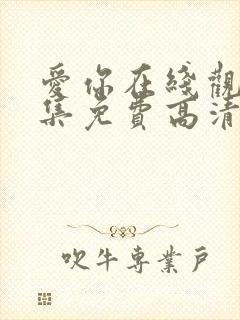 愛你在綫觀
集免費高清
吹牛專業戶